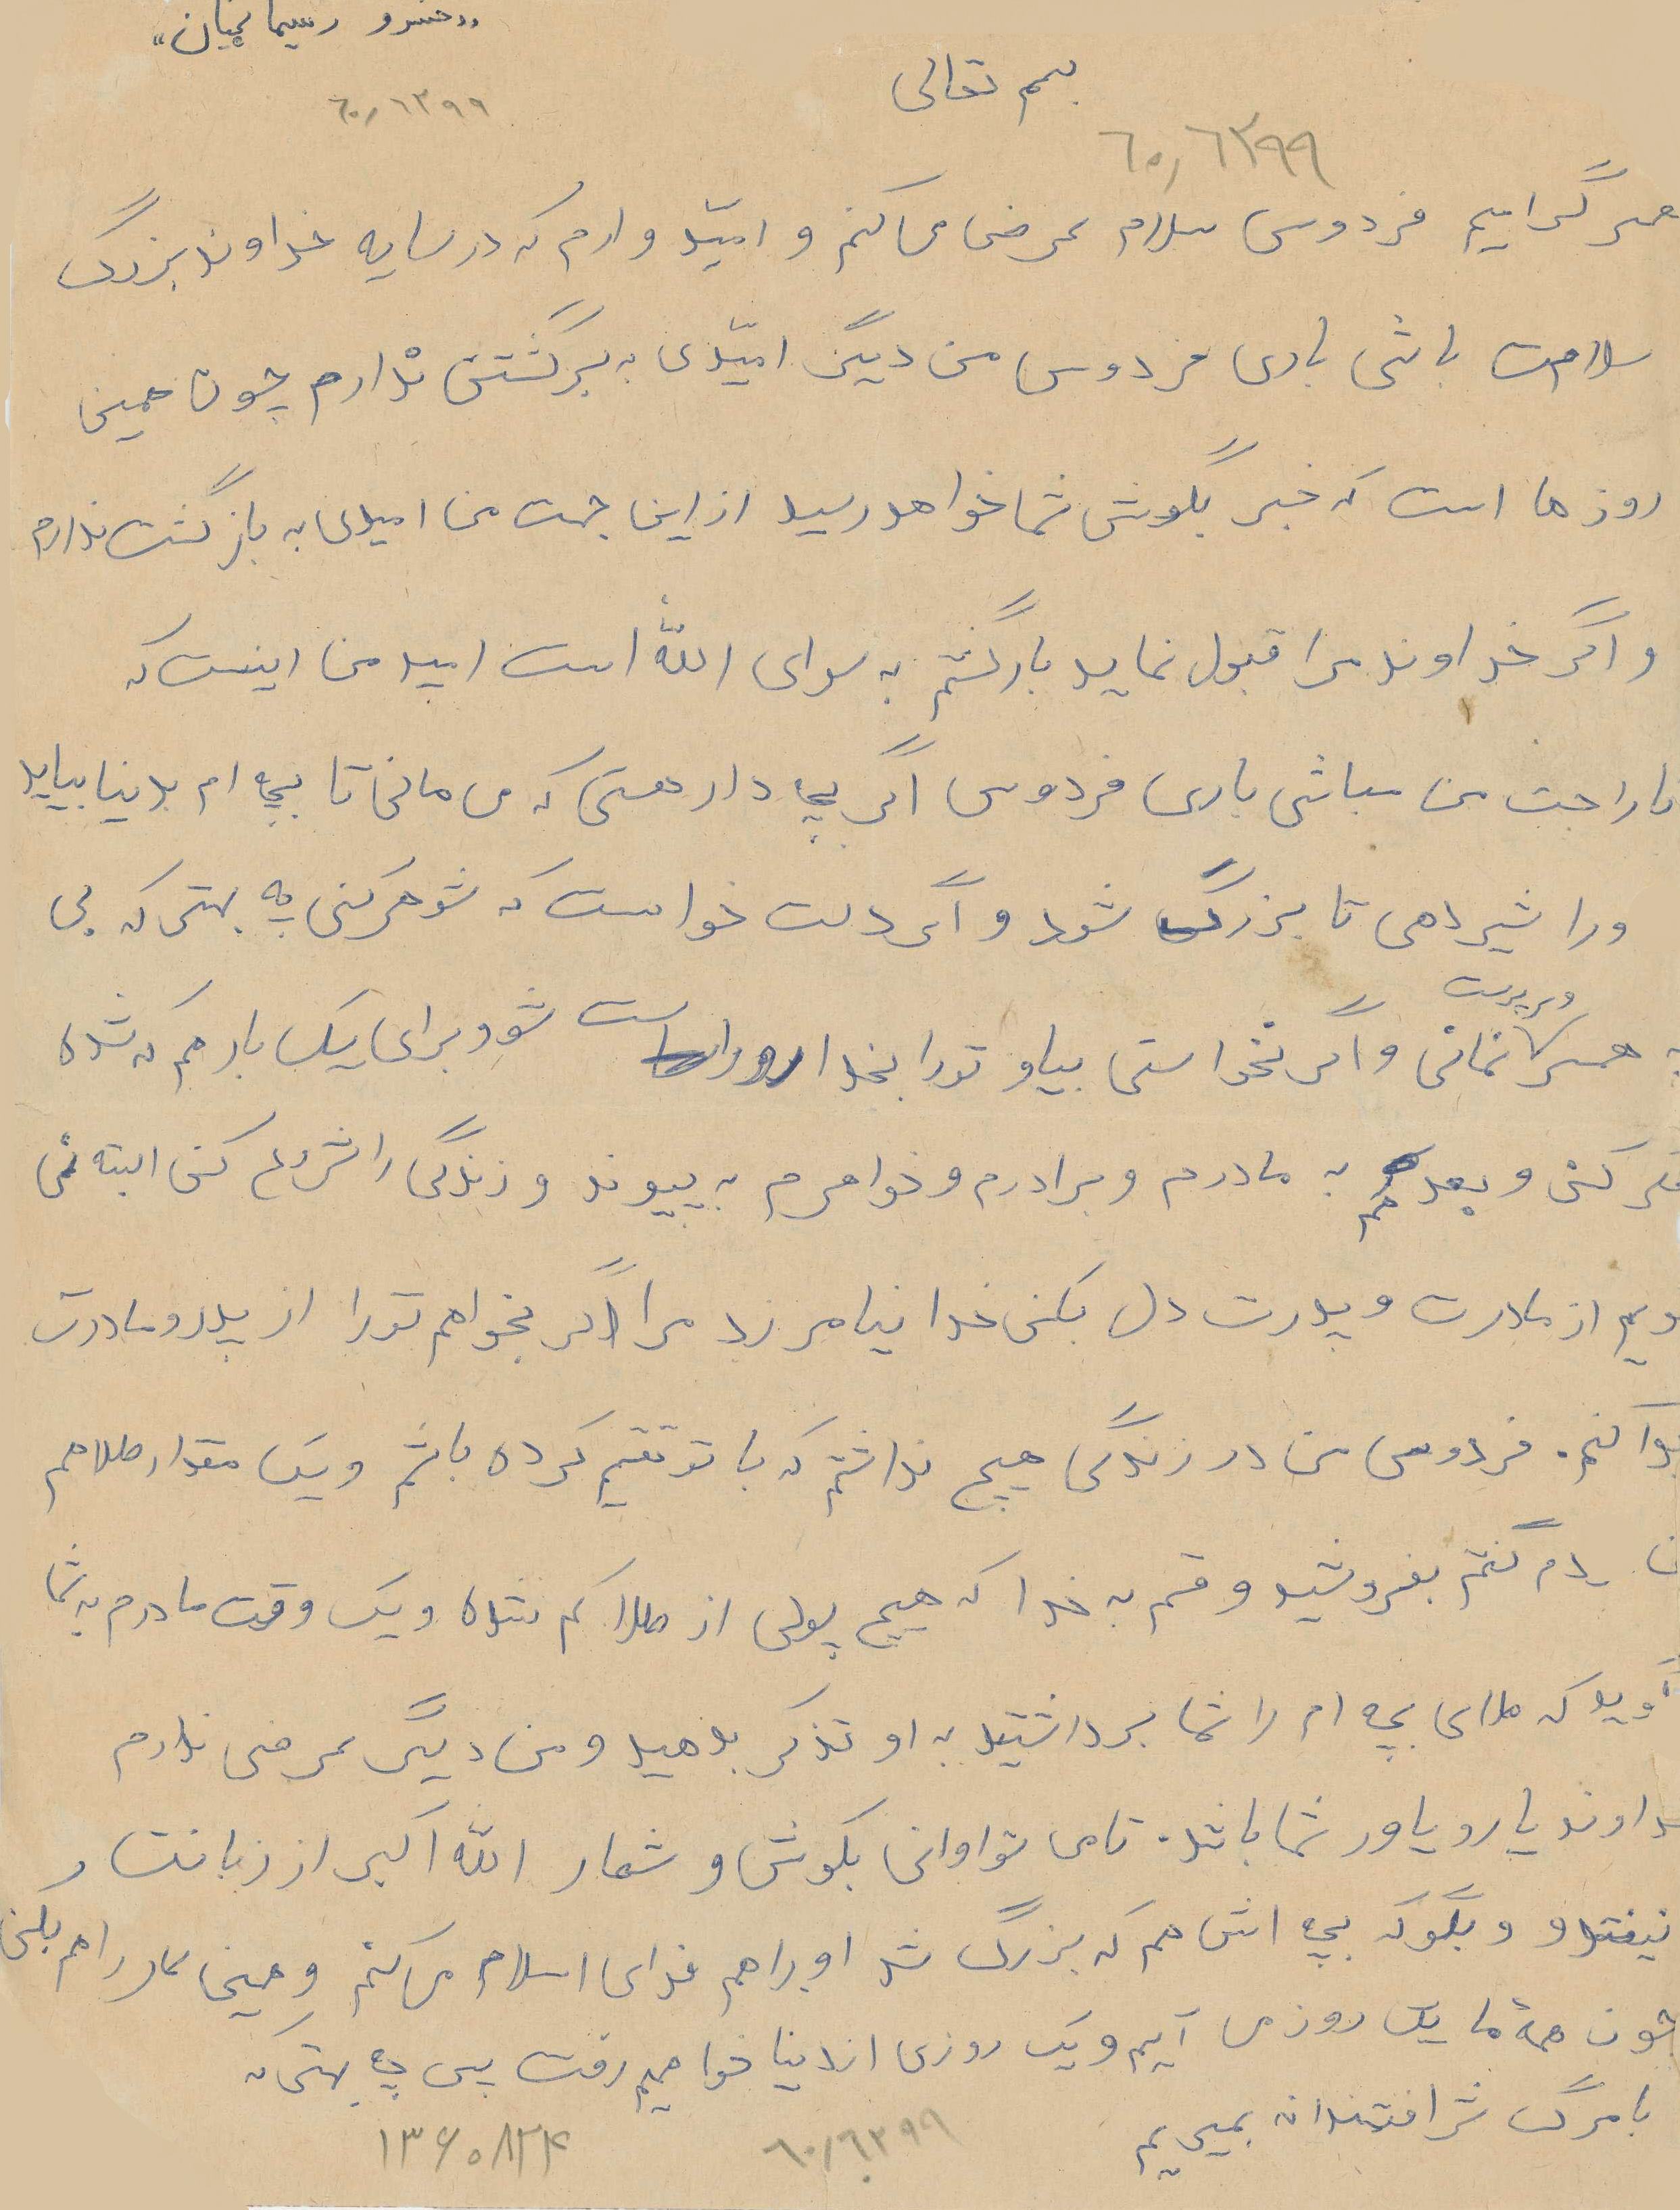 «خسرو ریسمانچیان»
بسم تعالی
۶۰٫۶۳۹۹
۶۰٫۶۳۹۹
همسر گرامیم فردوس سلام عرض می کنم و امیّد وارم که در سایه خداوند بزرگ
سلامت باشی باری فردوس من دیگر امیّدی به برگشتن ندارم چون همین
روزها است که خبر بگوش شما خواهد رسید از این جهت من امیدی به بازگشت ندارم
و اگر خداوند مرا قبول نماید بازگشتم به سوای اللّه است امید من اینست که
ناراحت من مباشی باری فردوس اگر بچه دار هستی که می مانی تا بچه ام بدنیا بیاید
ورا شیر دهی تا بزرگ شود و اگر دلت خواست که شوهر کنی چه بهتر که بی
سرپرست
همسر نمانی و اگر نخواستی بیا و تورا بخدا راست شو و برای یک بار هم که شده
فکر کنی و بعد هم به مادرم و برادرم و خواهرم به پیوند و زندگی را شروع کنی البته نمی
گویم از مادرت و پدرت دل بکنی خدا نیامرزد مرا اگر بخواهم تورا از پدر و مادرت
جدا کنم. فردوس من در زندگی هیچ نداشتم که با تو تقسیم کرده باشم و یک مقدار طلا هم
دم گفتم بفروشید و قسم به خدا که هیچ پولی از طلا کم نشده و یک وقت مادرم به شما
نگوید که طلای بچه ام را شما برداشتید به او تذکر بدهید و من دیگر عرضی ندارم
خداوند یار و یاور شما باشد. تا می تواوانی بکوش و شعار اللّه اکبر از زبانت
نیفتد و و بگو که بچه اش هم که بزرگ شد او را هم فدای اسلام می کنم و همین کار را هم بکن
چون همهٔ ما یک روز می آییم و یک روزی از دنیا خواهیم رفت پس چه بهتر که
با مرگ شرافتمندانه بمیریم
۶۰/۶۳۹۹
۱۳۶۰۸۲۴